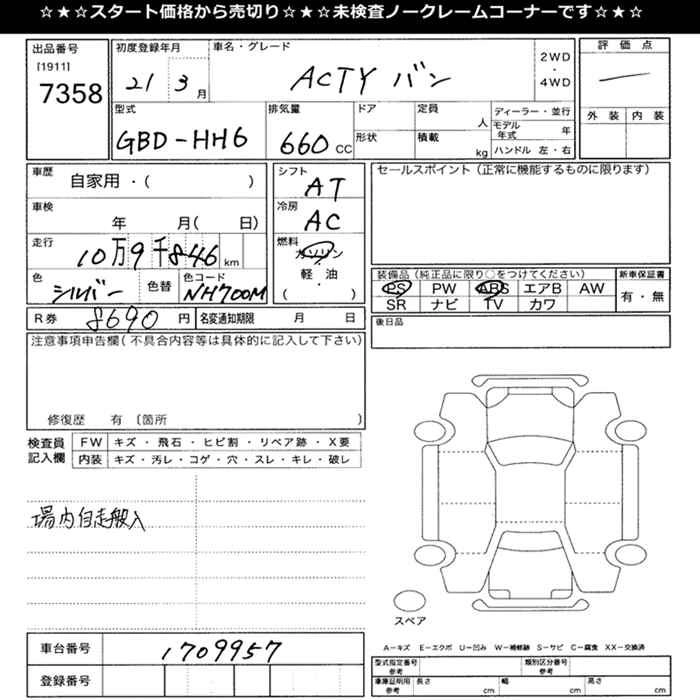 ☆★☆★スタート価格から売切り☆★☆★未検査ノークレームコーナーです☆★☆★☆
出品番号
[1911]
7358
初度登録年月
21 3月
車名・グレード
ACTY バン
2WD
・
4WD
評価点
外装 内装
型式
GBD-HH6
排気量
660 CC
ドア
形状
定員
人
積載
kg
ディーラー・並行
モデル年式 年
ハンドル 左・右
車歴
自家用・( )
車検
年 月( 日)
走行
10万9千846 km
色
シルバー
色替
色コード
NH700M
シフト
AT
冷房
AC
燃料
ガソリン
軽・油
( )
セールスポイント(正常に機能するものに限ります)
装備品(純正品に限り○をつけてください)
新車保証書
PS PW ABS エアB AW
SR ナビ TV カワ
有・無
R券 8690 円
名変通知期限 月 日
後日品
注意事項申告欄(不具合内容等は具体的に記入して下さい)
修復歴 有 〔箇所 )
検査員
記入欄
FW キズ・飛石・ヒビ割・リペア跡・X要
内装 キズ・汚レ・コゲ・穴・スレ・キレ・破レ
場内自走搬入
スペア
A-キズ E-エクボ U-凹み W-補修跡 S-サビ C-腐食 XX-交換済
車台番号
1709957
登録番号
型式指定番号
参考
類別区分番号
参考
車庫証明用
参考
長さ cm 幅 cm 高さ cm